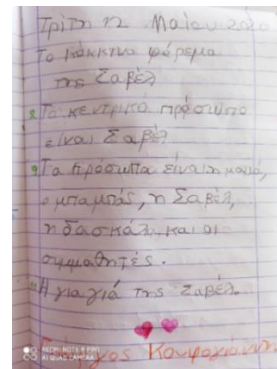 Τρίτη 12 Μαΐου 2020
Το κόκκινο φόρεμα
της Ζαβέλ
8 Το κεντρικό πρόσωπο
είναι Σαβέλ
9 Τα πρόσωπα είναι η μαμά,
ο μπαμπάς, η Σαβέλ,
η δασκάλα και οι
συμμαθητές.
Η γιαγιά της Ζαβέλ
REDMI NOTE 8 PRO
AI QUAD CAMERA